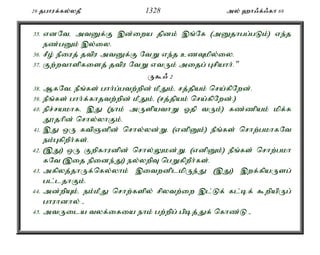 29 தபாரக்கல்லதீ 1328 அல் ஹாஃக்ஃகா 69
35. எனவே, அவனுக்கு இன்றைய தினம் இங்கே (அனுதாபப்படும்) எந்த நண்பனும் இல்லை.
36. சீழ் நீரைத் தவிர அவனுக்கு வேறு எந்த உணவுமில்லை.
37. குற்றவாளிகளைத் தவிர வேறு எவரும் அதைப் புசியார்."
ருகூஃ 2
38. ஆகவே, நீங்கள் பார்ப்பவற்றின் மீதும், சத்தியம் செய்கிறேன்.
39. நீங்கள் பார்க்காதவற்றின் மீதும், (சத்தியம் செய்கிறேன்:)
40. நிச்சயமாக, இது (நாம் அருளியவாறு ஓதி வரும்) கண்ணியம் மிக்க தூதரின் சொல்லாகும்.
41. இது ஒரு கவிஞனின் சொல்லன்று. (எனினும்) நீங்கள் சொற்பமாகவே நம்புகிறீர்கள்.
42. (இது) ஒரு குறிகாரனின் சொல்லுமன்று. (எனினும்) நீங்கள் சொற்பமாகவே (இதை நினைந்து) நல்லறிவு பெறுகிறீர்கள்.
43. அகிலத்தாருக்கெல்லாம் இறைவனிடமிருந்து (இது) இறக்கியருளப் பட்டதாகும்.
44. அன்றியும், நம்மீது சொற்களில் சிலவற்றை இட்டுக் கட்டிக் கூறியிருப் பாரானால் -
45. அவருடைய வலக்கையை நாம் பற்றிப் பிடித்துக் கொண்டு -